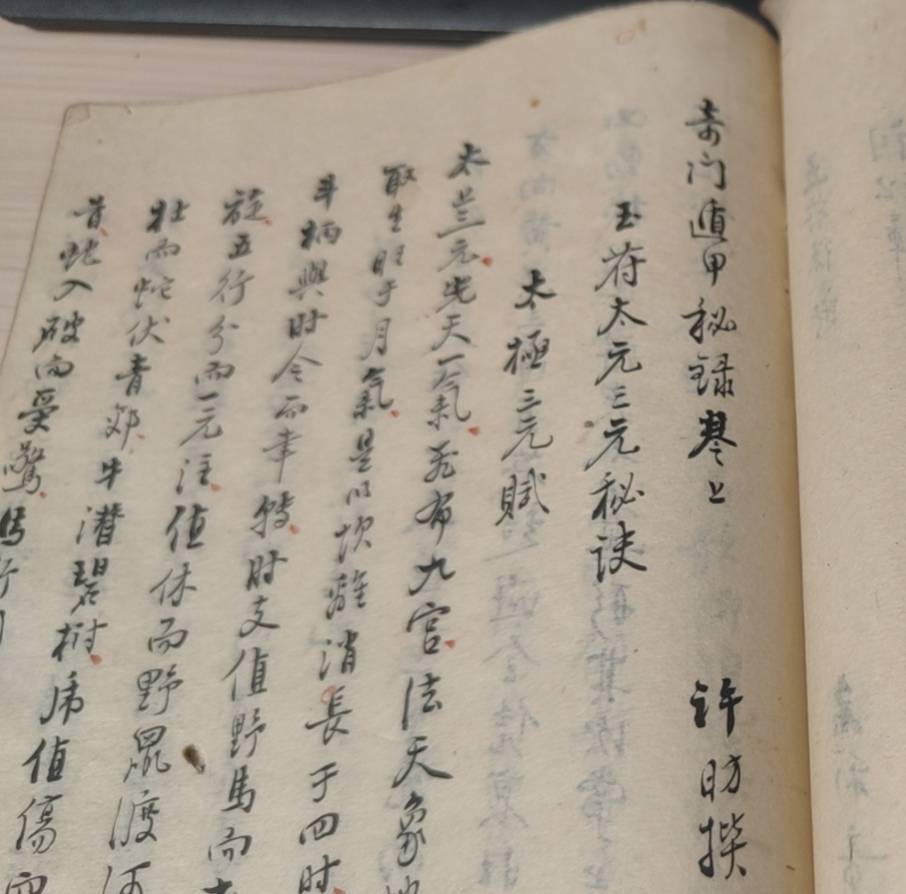 奇门遁甲秘録巻上 許昉撰
玉符太元三元秘诀
太極三元賦
太兰元先天一氣死布九宫法天象
取生旺于月氣是以坎離消長于四时
斗柄與时令而幸轉时支值野馬而
旋五行分而一元注值休而野鼠渡河
牡而蛇伏青郊牛潜碧樹虎值傷
昔蛇入破而受驚馬行